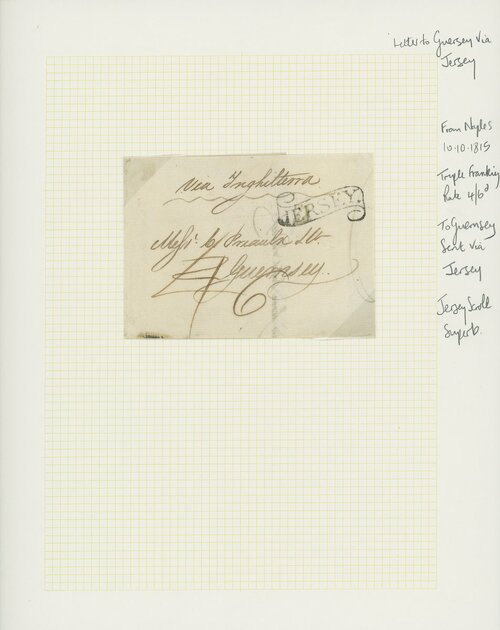 Letter to Guersey Via
Jersey
From Naples
10.10.1815
Triple Franking
Rate 4/6d
To Guernsey
Sent Via
Jersey
Jersey Scroll
Superb.
Via Inghilterra
JERSEY
Messrs
Guernsey.
4/6